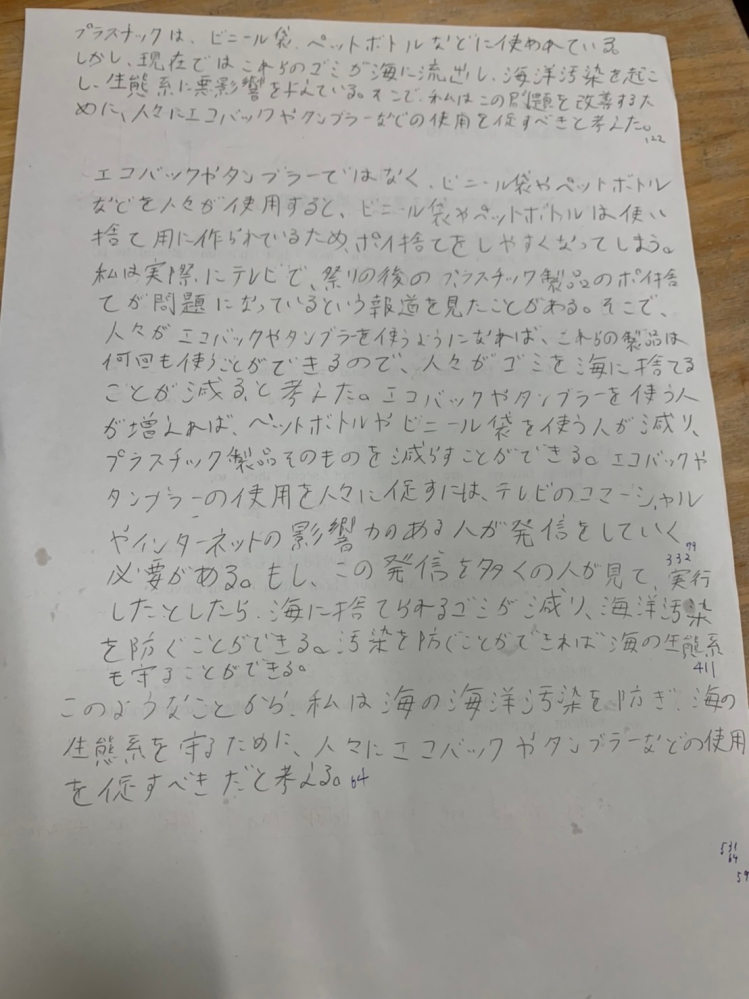 プラスチックは、ビニール袋、ペットボトルなどに使われている。
しかし、現在ではこれらのゴミが海に流出し、海洋汚染を起こ
し、生態系に悪影響を与えている。そこで、私はこの問題を改善するた
めに、人々にエコバックやタンブラーなどの使用を促すべきと考えた。
122
エコバックやタンブラーではなく、ビニール袋やペットボトル
などを人々が使用すると、ビニール袋やペットボトルは使い
捨て用に作られているため、ポイ捨てをしやすくなってしまう。
私は実際にテレビで、祭りの後のプラスチック製品のポイ捨
てが問題になっているという報道を見たことがある。そこで、
人々がエコバックやタンブラーを使うようになれば、これらの製品は
何回も使うことができるので、人々がゴミを海に捨てる
ことが減る、と考えた。エコバックやタンブラーを使う人
が増えれば、ペットボトルやビニール袋を使う人が減り、
プラスチック製品そのものを減らすことができる。エコバックや
タンブラーの使用を人々に促すには、テレビのコマーシャル
やインターネットの影響力のある人が発信をしていく
必要がある。もし、この発信を多くの人が見て、実行
79
332
したとしたら、海に捨てられるゴミが減り、海洋汚染
を防ぐことができる。汚染を防ぐことができれば海の生態系
も守ることができる。
411
このようなことから、私は海の海洋汚染を防ぎ、海の
生態系を守るために、人々にエコバックやタンブラーなどの使用
を促すべきだと考える。64
531
64
59